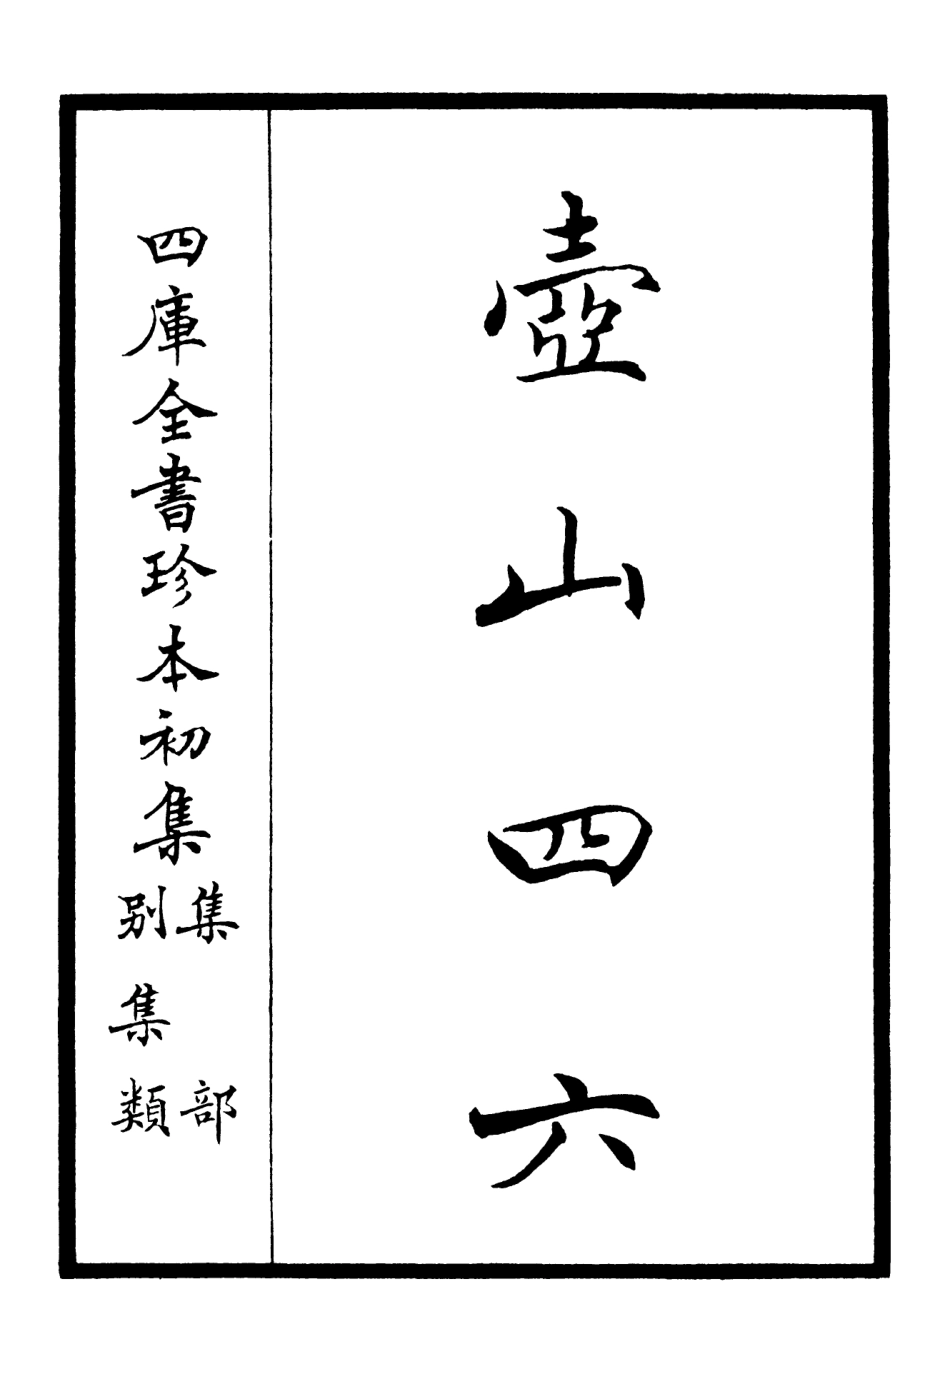 壺山四六
四庫全書珍本初集
集部
別集類